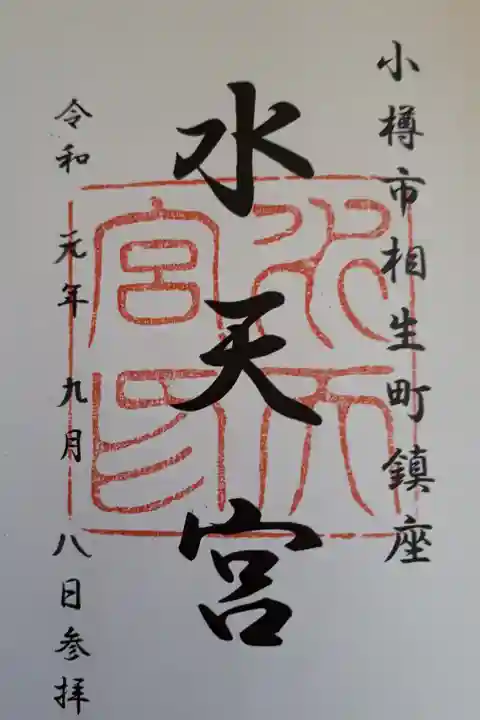 小樽市相生町鎮座
水天宮
水天
宮印
令和元年九月八日参拝